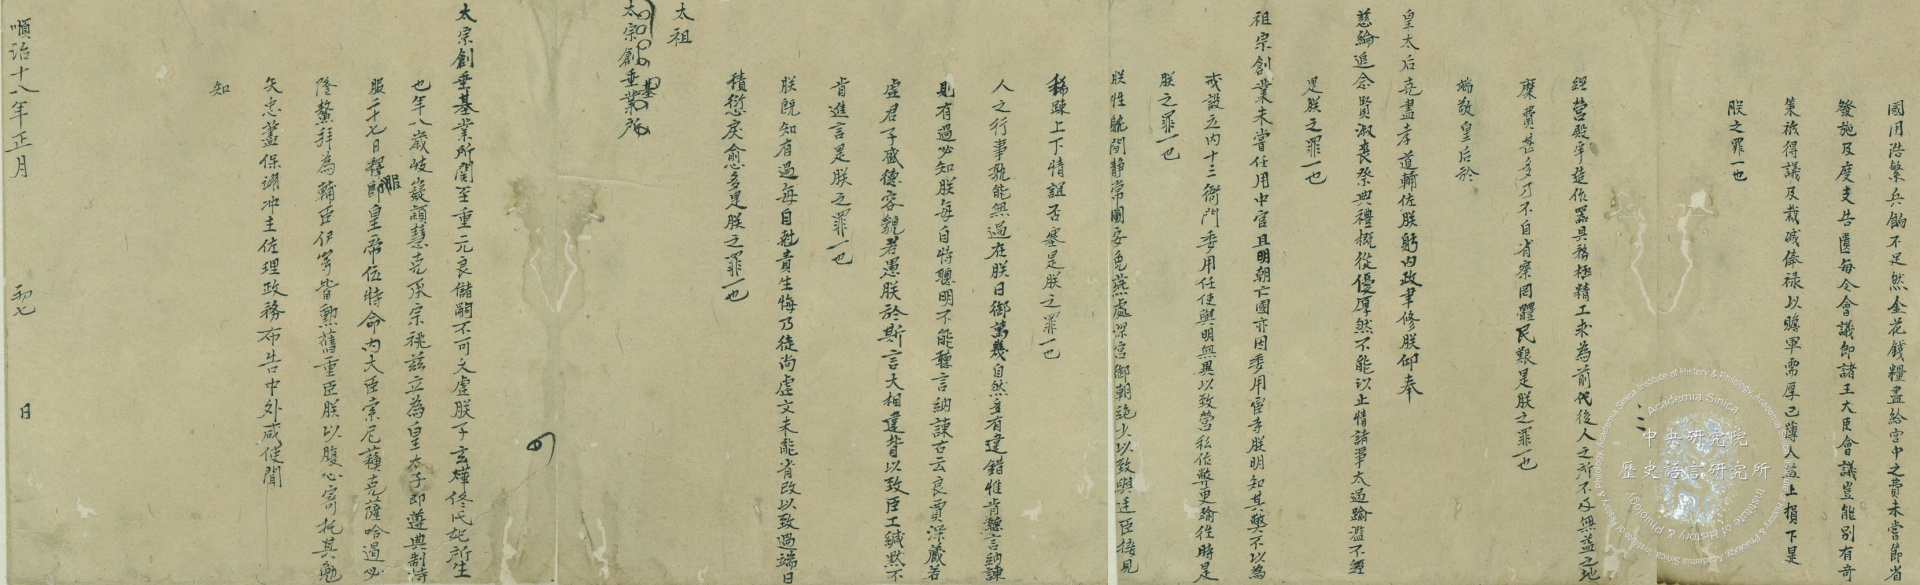 國用浩繁兵餉不足然金花錢糧盡給宮中之費未嘗節省
發施及度支告匱每令會議即諸王大臣會議豈能別有奇
策秪得議及裁減俸祿以贍軍需厚己薄人益上損下是
朕之罪一也
經營殿宇造作器具務極精工求為前代後人之所不及無益之地
糜費甚多乃不自省察罔體民艱是朕之罪一也
端敬皇后於
皇太后克盡孝道輔佐朕躬內政聿修朕仰奉
慈綸追念賢淑喪祭典禮概從優厚然不能以止情諸事太過踰濫不經
是朕之罪一也
祖宗創業未嘗任用中官且明朝亡國亦因委用宦寺朕明知其弊不以為
戒設立內十三衙門委用任使與明無異以致營私作弊更踰往時是
朕之罪一也
朕性躭閒靜常圖安逸燕處深宮御朝絕少以致與廷臣接見
稀踈上下情誼否塞是朕之罪一也
人之行事孰能無過在朕日御萬幾自然多有違錯惟肯聽言納諫
則有過必知朕每自恃聰明不能聽言納諫古云良賈深藏若
虛君子盛德容貌若愚朕於斯言大相違背以致臣工緘默不
肯進言是朕之罪一也
朕既知有過每自尅責生悔乃徒尚虛文未能省改以致過端日
積愆戾愈多是朕之罪一也
太祖
太宗創垂業所
基
太宗創垂基業所關至重元良儲嗣不可久虛朕子玄燁佟氏妃所生
也年八歲岐嶷穎慧克承宗祧茲立為皇太子即遵典制持
服二十七日釋服即皇帝位特命內大臣索尼蘇克薩哈遏必
隆鰲拜為輔臣伊等皆勳舊重臣朕以腹心寄托其勉
矢忠藎保翊冲主佐理政務布告中外咸使聞
知
順治十八年正月 初七 日
中央研究院
歷史語言研究所
Academia Sinica
Institute of History & Philology